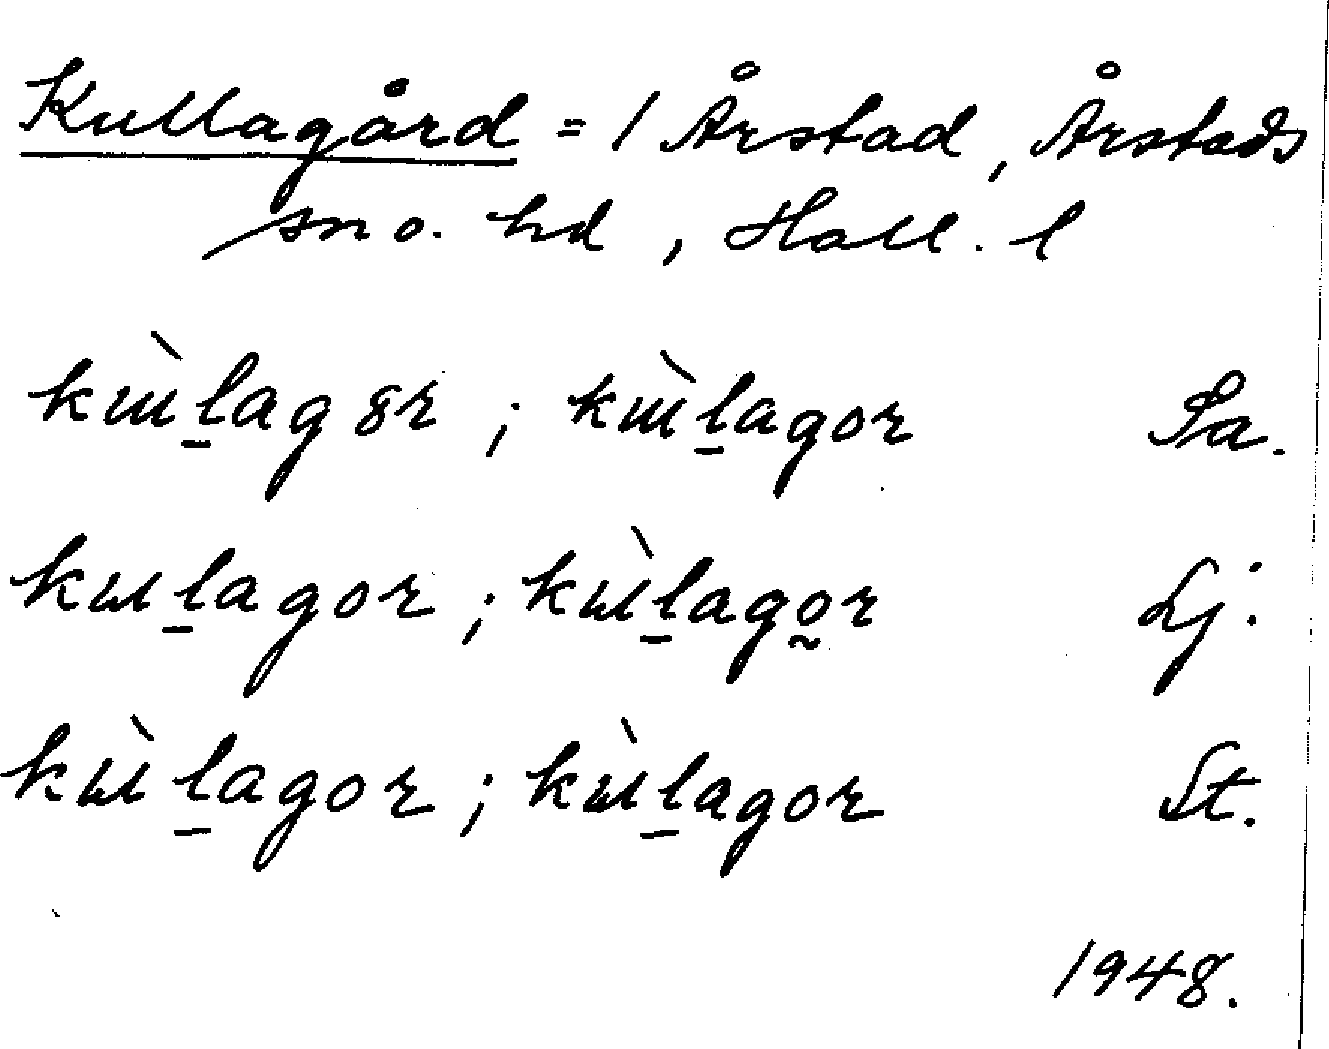 Kullagård = 1 Årstad, Årstads
sn o. hd, Hall. l
kɯ̀l̠agȣr ; kɯ̀l̠agor Sa.
kɯl̠agor ; kɯ̀l̠ago̰r Lj.
kɯ̀l̠agor ; kɯ̀l̠agor St.
1948.